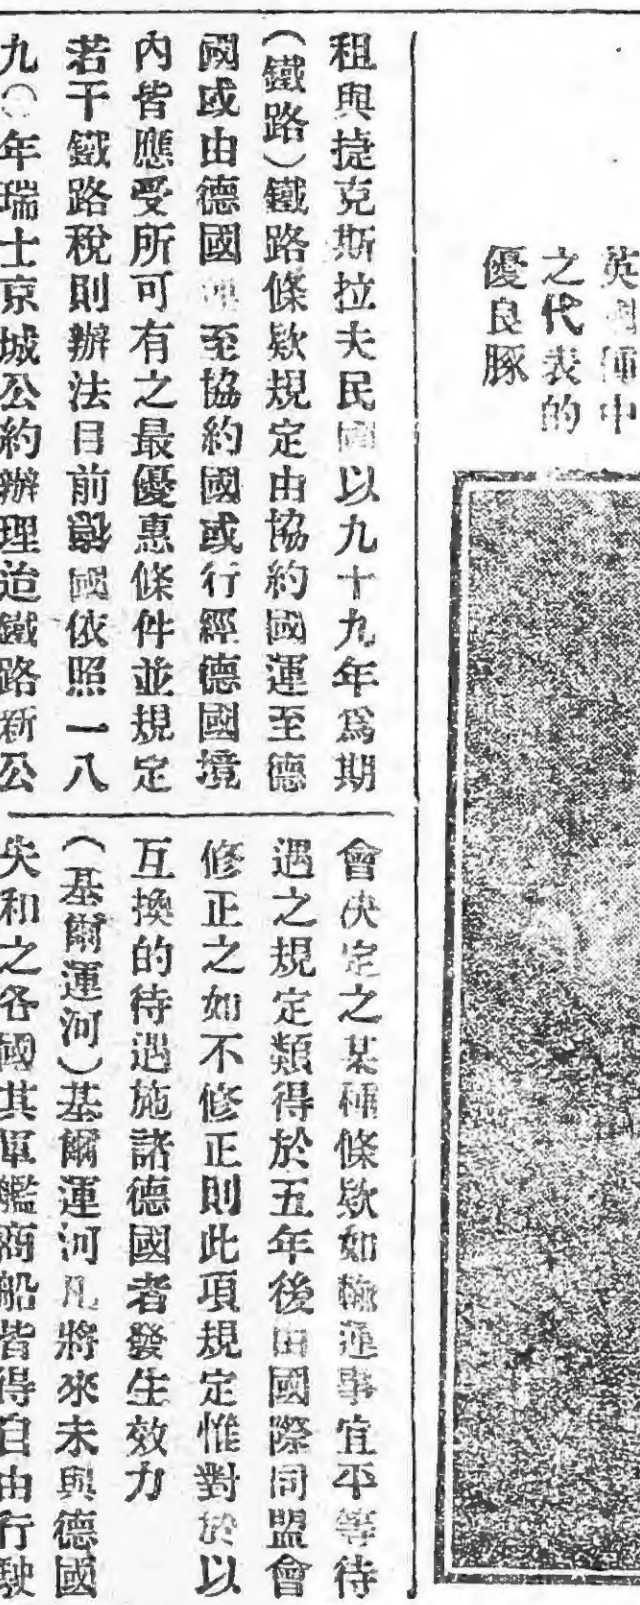 英 中
之代表的
優良豚
租與捷克斯拉夫民國以九十九年爲期
(鐵路)鐵路條欵規定由協約國運至德
國或由德國運至協約國或行經德國境
內皆應受所可有之最優惠條件並規定
若干鐵路稅則辦法目前 國依照一八
九〇年瑞士京城公約辦理 鐵路新公
會決定之某種條欵如輸運事宜平等待
遇之規定類得於五年後由國際同盟會
修正之如不修正則此項規定惟對於以
互換的待遇施諸德國者發生效力
(基爾運河)基爾運河凡將來未與德國
失和之各國其軍艦商船皆得自由行駛